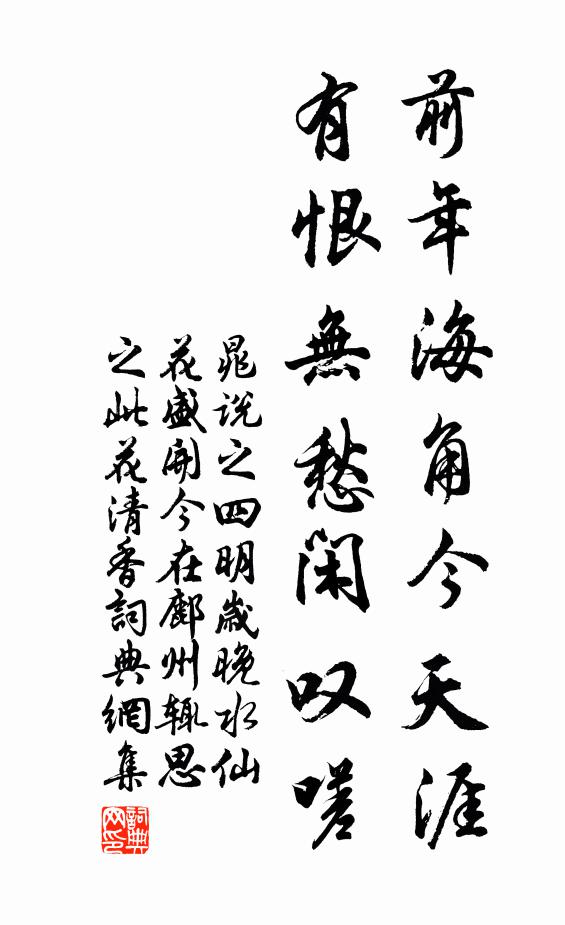 前年海角今天涯
有恨無愁閑叹嗟
晁说之四明歲晚水仙
花盛開今在鄜州辄思
之此花清香詞典網集
詞典
网印